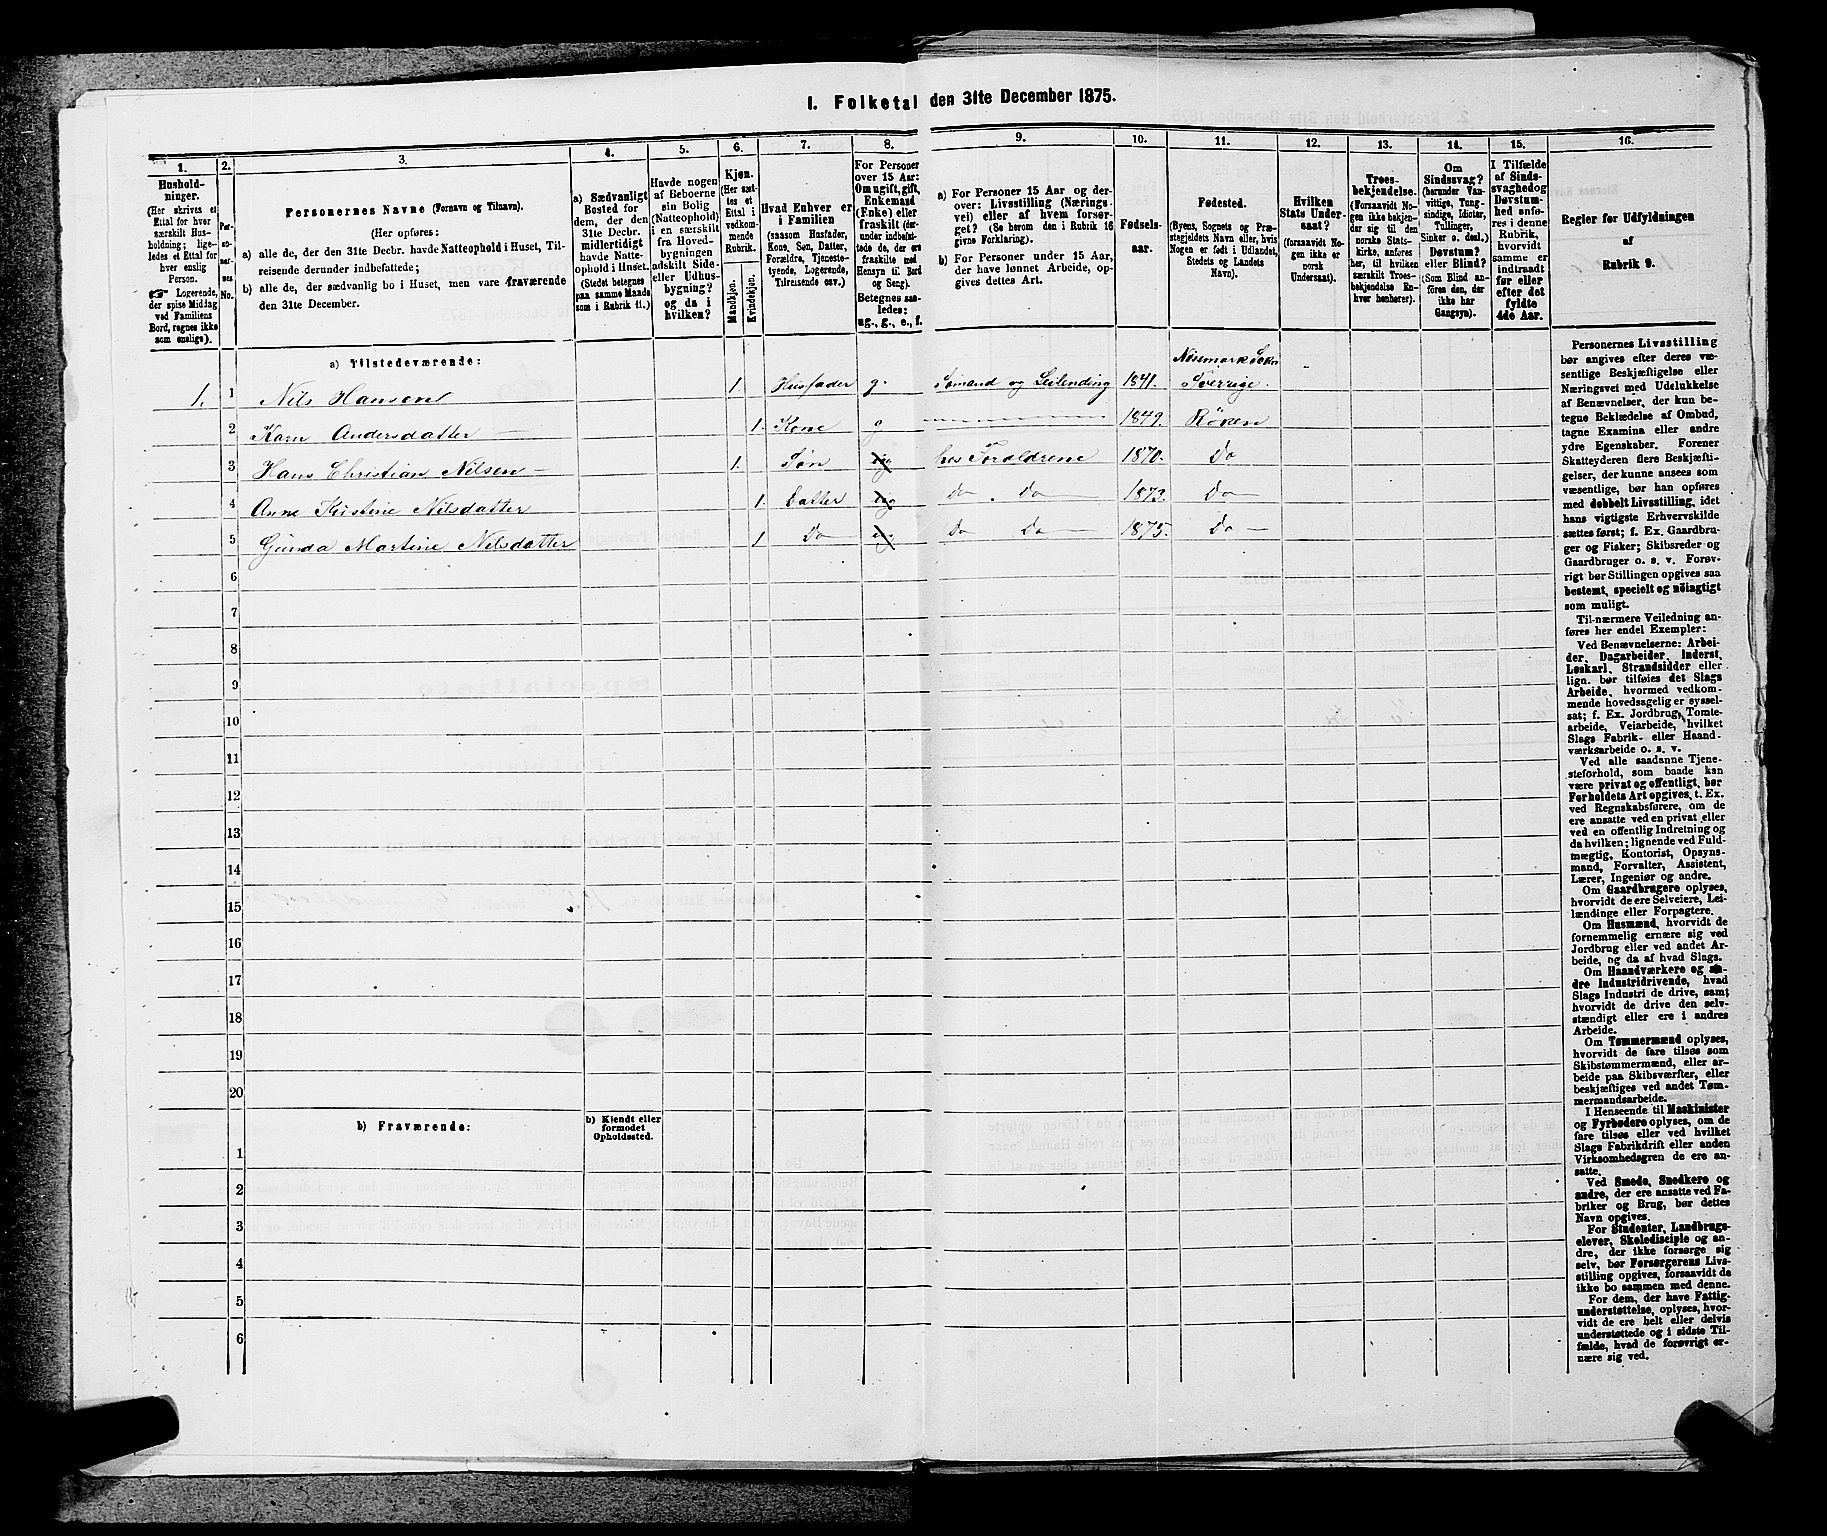 1. Folketal den 31te December 1875.
1. 2. 3. 4. 5. 6. 7. 8. 9. 10. 11. 12. 13. 14. 15. 16.
Hushold-
ninger.
(Her skrives et
Ettal for hver
særskilt Hus-
holdning; lige-
ledes et Ettal for
hver enslig
Person.
☞ Logerende,
der spise Middag
ved Familiens
Bord, regnes ikke
som enslige).
Per-
so-
ner-
nes
No.
Personernes Navne (Fornavn og Tilnavn).
(Her opføres:
a) alle de, der den 31te Decbr. havde Natteophold i Huset, Til-
reisende derunder indbefattede;
b) alle de, der sædvanlig bo i Huset, men vare fraværende
den 31te December.
a) Sædvanligt
Bosted for
dem, der den
31te Decbr.
midlertidigt
havde Natte-
ophold i Huset.
(Stedet betegnes
paa samme Maade
som i Rubrik 11.)
Havde nogen
af Beboerne
sin Bolig
(Natteophold)
i en særskilt
fra Hoved-
bygningen
adskilt Side-
eller Udhus-
bygning?
og da i
hvilken?
Kjøn.
(Her sæt-
tes et
Ettal i
vedkom-
mende
Rubrik.
Mandkjøn.
Kvindekjøn.
Hvad Enhver er
i Familien
(saasom Husfader,
Kone, Søn, Datter,
Forældre, Tjeneste-
tyende, Logerende,
Tilreisende osv.)
For Personer
over 15 Aar:
Om ugift, gift,
Enkemand
(Enke) eller
fraskilt (der-
under indbefat-
tede de, der ere
fraskilte med
Hensyn til Bord
og Seng).
Betegnes saa-
ledes:
ug., g., e., f.
a) For Personer 15 Aar og der-
over: Livsstilling (Nærings-
vei) eller af hvem forsør-
get? (Se herom den i Rubrik 16
givne Forklaring).
b) For Personer under 15 Aar,
der have lønnet Arbeide, op-
gives dettes Art.
Fødsels-
aar.
Fødested.
(Byens, Sognets og Præ-
stegjeldets Navn eller, hvis
Nogen er født i Udlandet,
Stedets og Landets
Navn).
Hvilken
Stats Under-
saat?
(forsaavidt No-
gen ikke er
norsk
Undersaat).
Troes-
bekjendelse.
(Forsaavidt No-
gen ikke bekjen-
der sig til den
norske Stats-
kirke, anføres
her, til hvilken
særskilt Troes-
bekjendelse En-
hver henhører).
Om
Sindssvag?
(herunder Van-
vittige, Tung-
sindige, Idioter,
Sinker o. desl.)
Døvstum?
eller Blind?
(Som Blind an-
føres den, der
ikke har
Gangsyn).
I Tilfælde
af Sinds-
svaghed og
Døvstum-
hed anfø-
res i denne
Rubrik,
hvorvidt
samme er
indtraadt
før eller
efter det
fyldte
4de Aar.
Regler for Udfyldningen
af
Rubrik 9.
a) Tilstedeværende:
1. 1 Nils Hansen 1. Husfader g. Sømand og Leilending 1841. Sverrige.
2 Karn Andersdatter 1. Kone g 1849. Røken
3 Hans Christian Nilsen 1. Søn ug hos Foraldrene 1870. Do
4 Anne Kirstine Nilsdatter 1. Datter ug Do Do 1873. Do
5 Gunda Martine Nilsdatter 1 Do ug Do Do 1875. Do
6
7
8
9
10
11
12
13
14
15
16
17
18
19
20
b) Fraværende:
b) Kjendt eller
formodet
Opholdssted.
1
2
3
4
5
6
Personernes Livsstilling
bør angives efter deres væ-
sentlige Beskjæftigelse eller
Næringsvei med Udelukkelse
af Benævnelser, der kun be-
tegne Beklædelse af Ombud,
tagne Examina eller andre
ydre Egenskaber. Forener
Skatteyderen flere Beskjæfti-
gelser, der kunne ansees som
væsentlige, bør han opføres
med dobbelt Livsstilling, idet
hans vigtigste Erhvervskilde
sættes først; f. Ex. Gaardbru-
ger og Fisker; Skibsreder og
Gaardbruger o. s. v. Forøv-
rigt bør Stillingen opgives saa
bestemt, specielt og nöiagtigt
som muligt.
Til nærmere Veiledning an-
føres her endel Exempler:
Ved Benævnelserne: Arbei-
der, Dagarbeider, Inderst,
Løskarl, Strandsidder eller
lign. bør tilføies det Slags
Arbeide, hvormed vedkom-
mende hovedsagelig er syssel-
sat; f. Ex. Jordbrug, Tomte-
arbeide, Veiarbeide, hvilket
Slags Fabrik- eller Haand-
værksarbeide o. s. v.
Ved alle saadanne Tjene-
steforhold, som baade kan
være privat og offentligt, bør
Forholdets Art opgives, t. Ex.
ved Regnskabsførere, om de
ere ansatte ved en privat eller
ved en offentlig Indretning og
da hvilken; lignende ved Fuld-
mægtig, Kontorist, Opsyns-
mand, Forvalter, Assistent,
Lærer, Ingeniør og andre.
Om Gaardbrugere oplyses,
hvorvidt de ere Selveiere, Lei-
lændinge eller Forpagtere.
Om Husmænd, hvorvidt de
fornemmelig ernære sig ved
Jordbrug eller ved andet Ar-
beide, og da af hvad Slags.
Om Haandværkere og an-
dre Industridrivende, hvad
Slags Industri de drive, samt
hvorvidt de drive den selv-
stændigt eller ere i andres
Arbeide.
Om Tømmermænd oplyses,
hvorvidt de fare tilsøs som
Skibstømmermænd, eller ar-
beide paa Skibsværfter, eller
beskjæftiges ved andet Tøm-
mermandsarbeide.
I Henseende til Maskinister
og Fyrbødere oplyses, om de
fare tilsøs eller ved hvilket
Slags Fabrikdrift eller anden
Virksomhedsgren de ere an-
satte.
Ved Smede, Snedkere og
andre, der ere ansatte ved Fa-
briker og Brug, bør dettes
Navn opgives.
For Studenter, Landbrugs-
elever, Skoledisciple og an-
dre, der ikke forsørge sig
selv, bør Forsørgerens Livs-
stilling opgives, forsaavidt de
ikke bo sammen med denne.
For dem, der have Fattig-
understøttelse, oplyses, hvor-
vidt de ere helt eller delvis
understøttede og i sidste Til-
fælde, hvad de forøvrigt er-
nære sig ved.